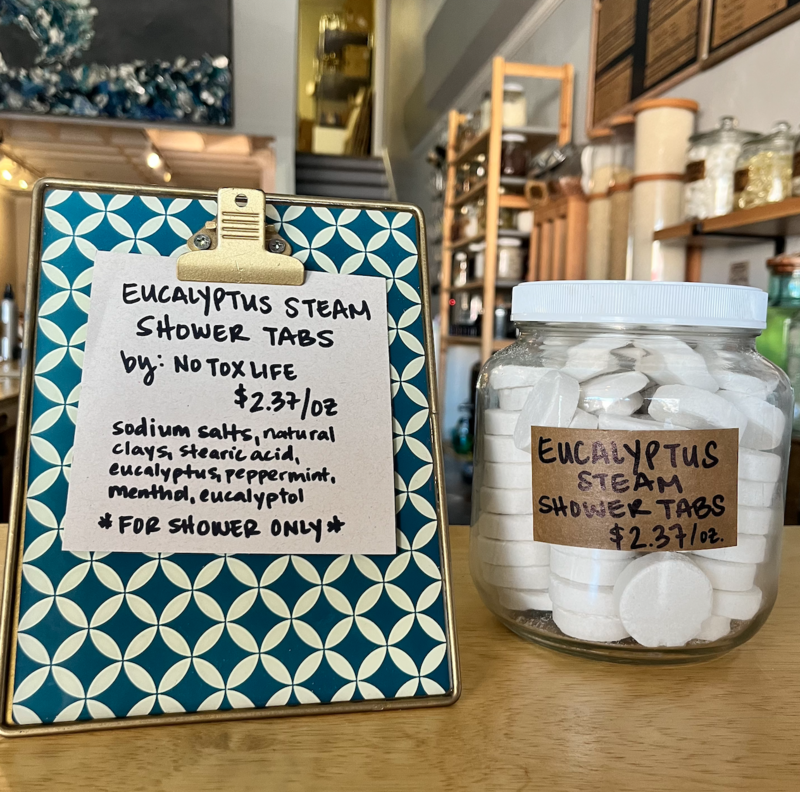 EUCALYPTUS STEAM
SHOWER TABS
by: NO TOX LIFE
$2.37/oz
sodium salts, natural
clays, stearic acid,
eucalyptus, peppermint,
menthol, eucalyptol
*FOR SHOWER ONLY*
EUCALYPTUS
STEAM
SHOWER TABS
$2.37/oz.